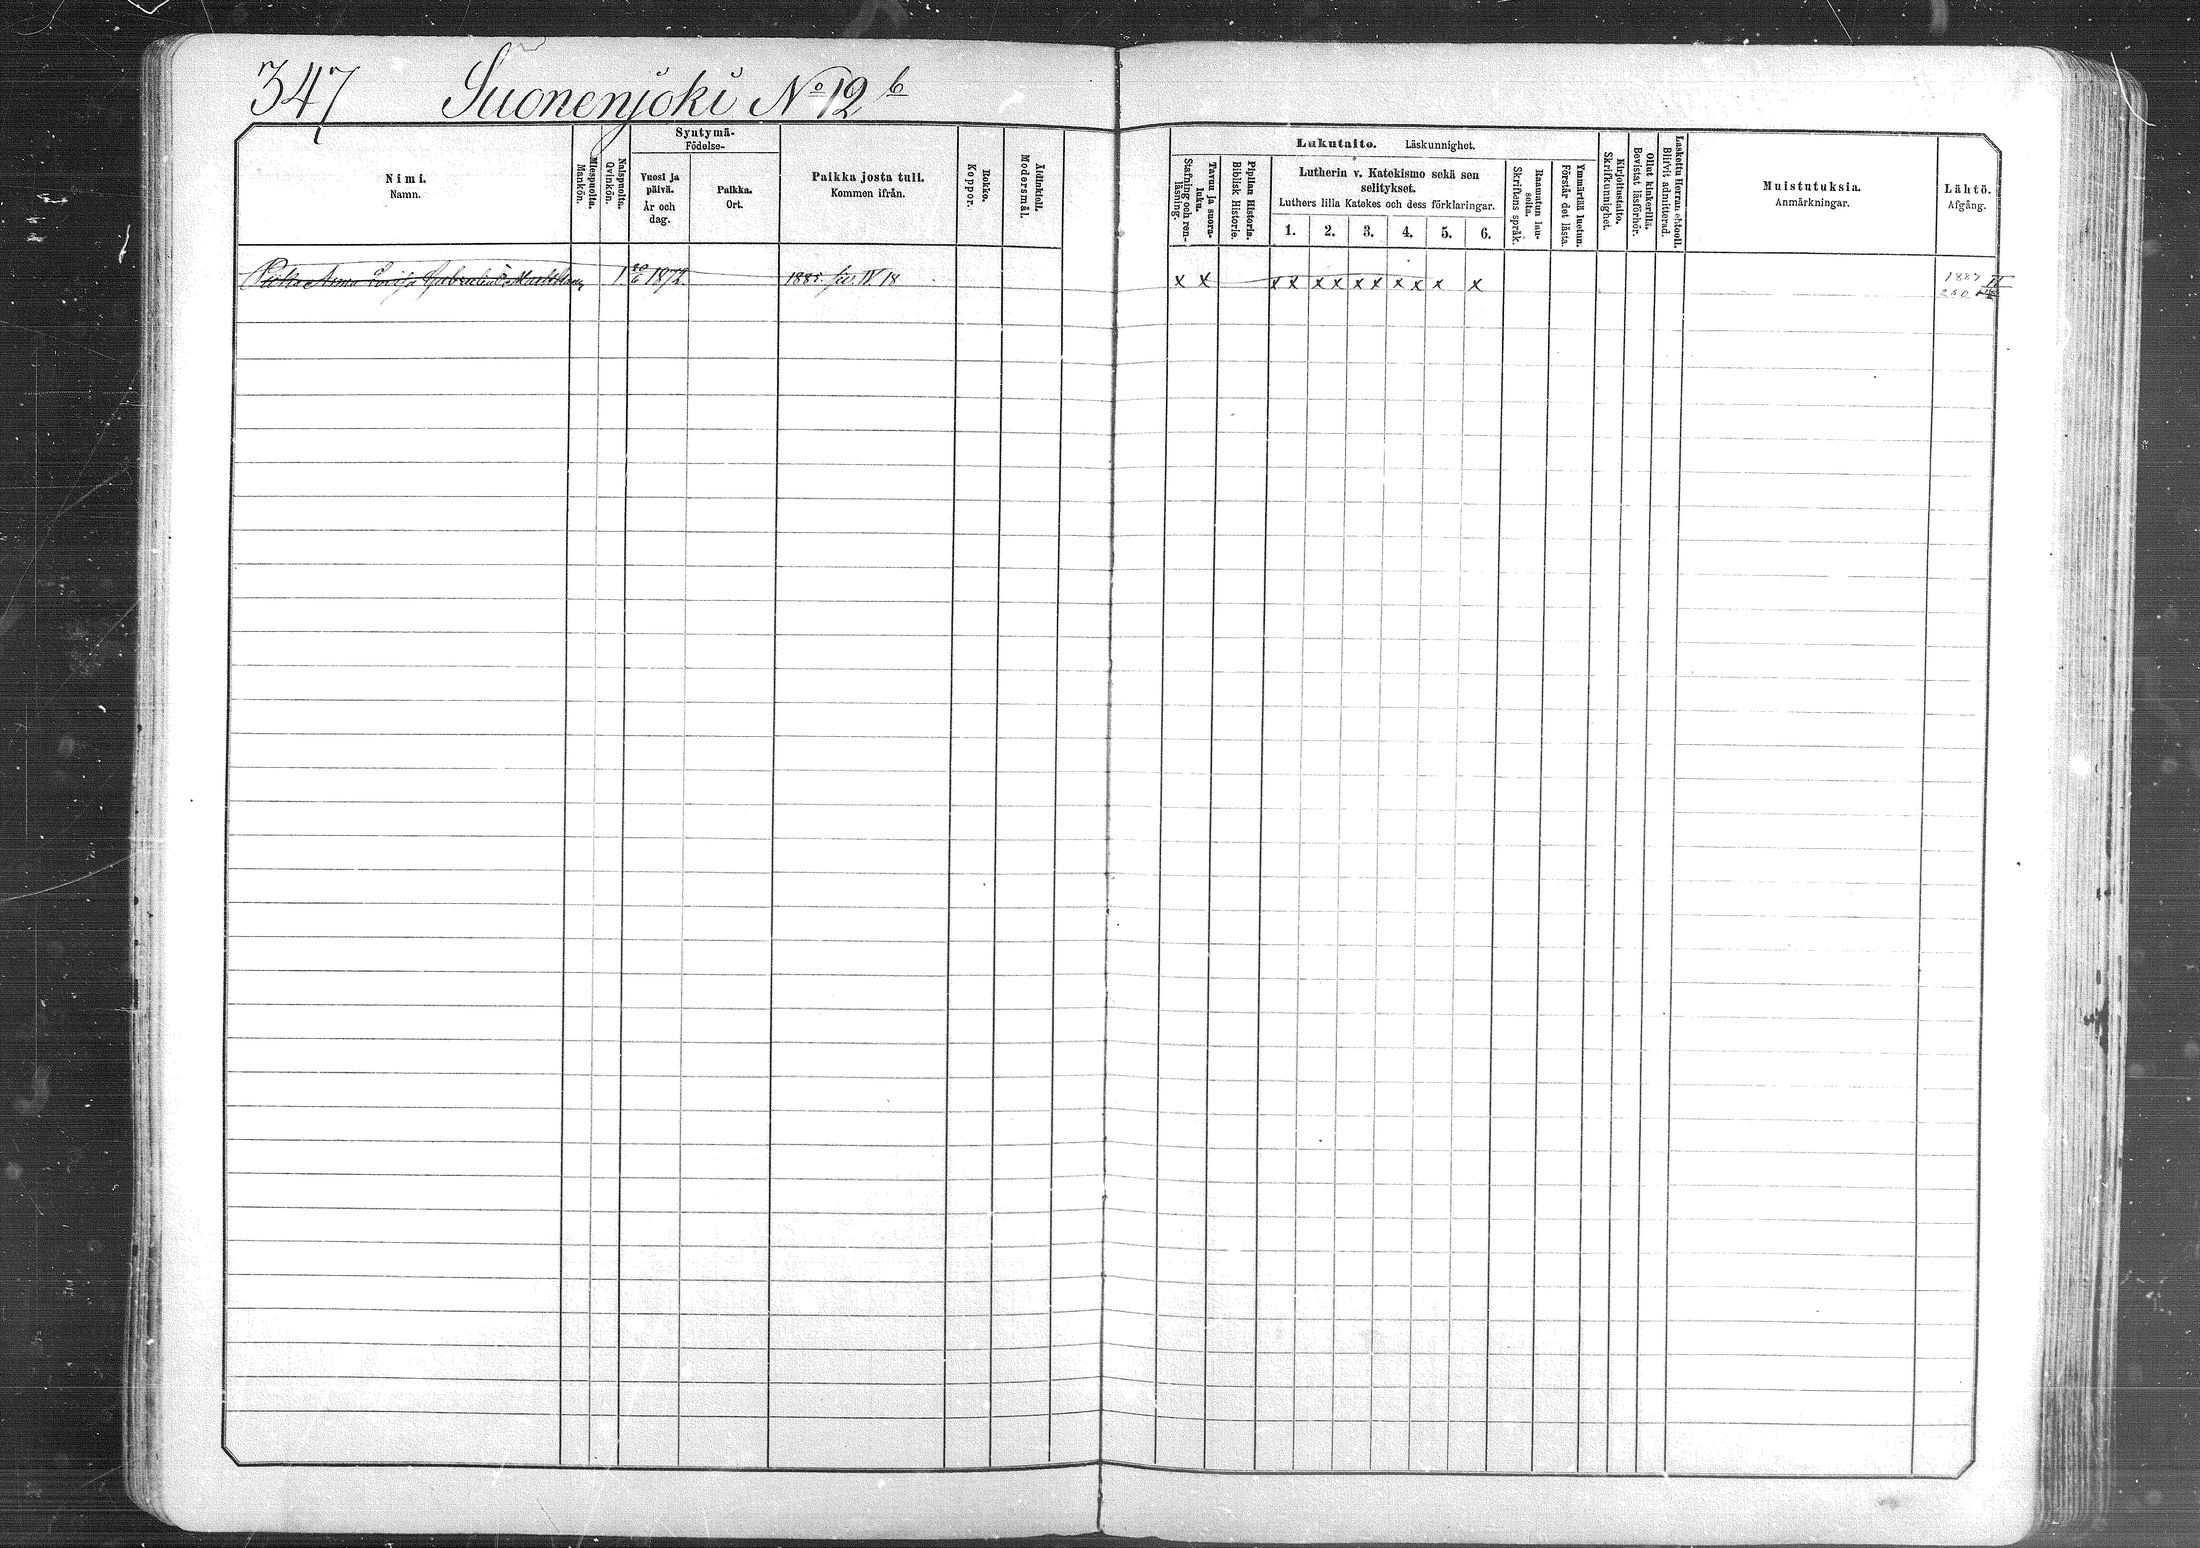 347 Suonenjoki No 12 b
Nimi.
Namn.
Miespuolta.
Mankön.
Naispuolta.
Qvinkön.
Syntymä-
Födelse-
Vuosi ja
päivä.
År och
dag.
Paikka.
Ort.
Paikka josta tuli.
Kommen ifrån.
Rokko.
Koppor.
Äidinkieli.
Modersmål.
Lukutaito. Läskunnighet.
Tavuu ja suora-
luku.
Stafning och ren-
läsning.
Piplian Historia.
Biblisk Historie.
Lutherin v. Katekismo sekä sen
selitykset.
Luthers lilla Katekes och dess förklaringar.
1. 2. 3. 4. 5. 6.
Raamatun lau-
seita.
Skriftens språk.
Ymmärtää luetun.
Förstår det lästa.
Kirjoitustaito.
Skrifkunnighet.
Ollut kinkerillä.
Bevistat läsförhör.
Laskettu Herran ehtooll.
Blifvit admitterad.
Muistutuksia.
Anmärkningar.
Lähtö.
Afgång.
Anna 1 20/6 1872. 1885. IV 18 x x x x x x x x x x x x 1887 IV
250